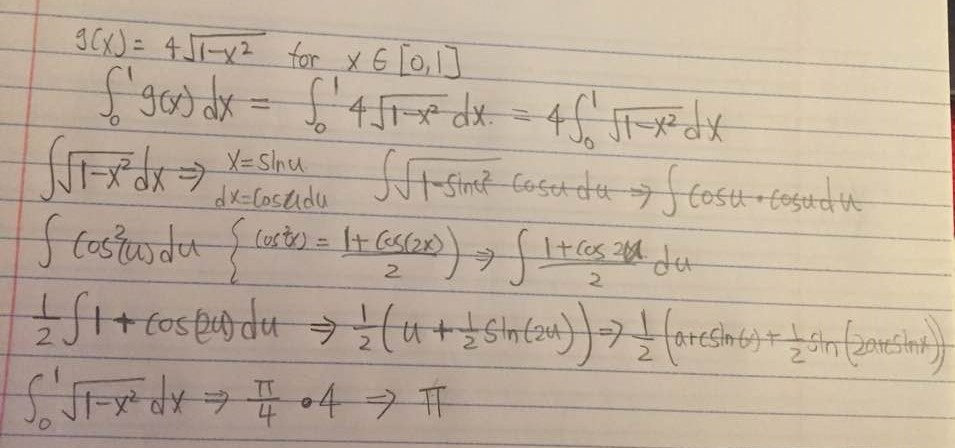 g(x) = 4√(1-x²) for x ∈ [0,1]
∫₀¹ g(x) dx = ∫₀¹ 4√(1-x²) dx. = 4∫₀¹ √(1-x²) dx
∫√(1-x²) dx ⇒ x=sinu dx=cosudu ∫√(1-sinu²) cosu du ⇒ ∫ cosu · cosu du
∫ cos²(u) du { cos²(x) = (1+cos(2x))/2 ) ⇒ ∫ (1+cos 2u)/2 du
1/2 ∫ 1 + cos(2u) du ⇒ 1/2 (u + 1/2 sin(2u)) ⇒ 1/2 (arcsin(x) + 1/2 sin(2arcsinx))
∫₀¹ √(1-x²) dx ⇒ π/4 · 4 ⇒ π